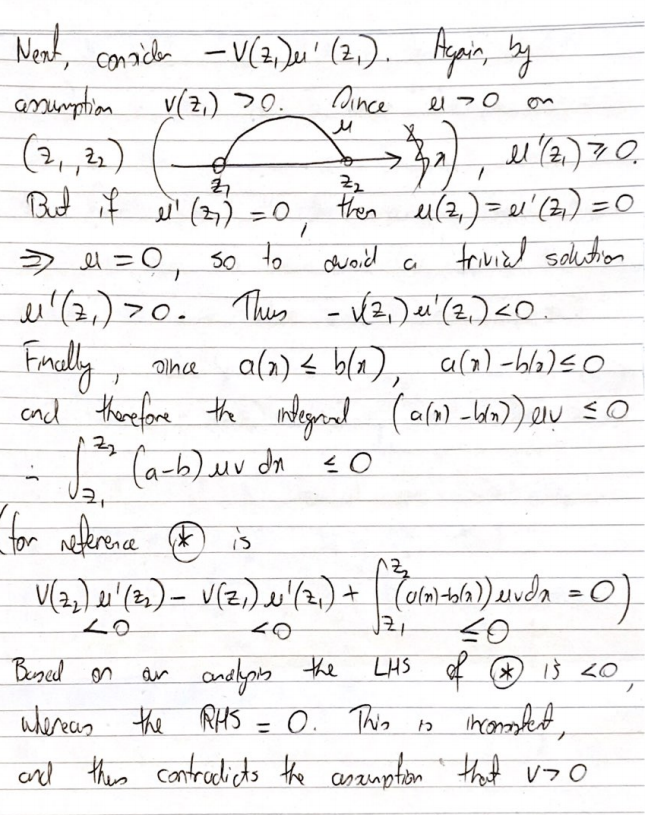 Next, consider - V(z₁)u'(z₁). Again, by
assumption v(z₁) > 0. Since u > 0 on
(z₁, z₂) ( z₁ z₂ u x ), u'(z₁) ⩾ 0.
But if u'(z₁) = 0, then u(z₁) = u'(z₁) = 0
⇒ u = 0, so to avoid a trivial solution
u'(z₁) > 0. Thus - v(z₁) u'(z₁) < 0.
Finally, since a(x) ≤ b(x), a(x) - b(x) ≤ 0
and therefore the integrand (a(x) - b(x)) uv ≤ 0
∴ ∫_{z₁}^{z₂} (a-b) uv dx ≤ 0
(for reference ⊛ is
V(z₂) u'(z₂) - V(z₁) u'(z₁) + ∫_{z₁}^{z₂} (a(x)-b(x)) uv dx = 0)
<0 <0 ≤0
Based on our analysis the LHS of ⊛ is <0,
whereas the RHS = 0. This is inconsistent,
and thus contradicts the assumption that v > 0